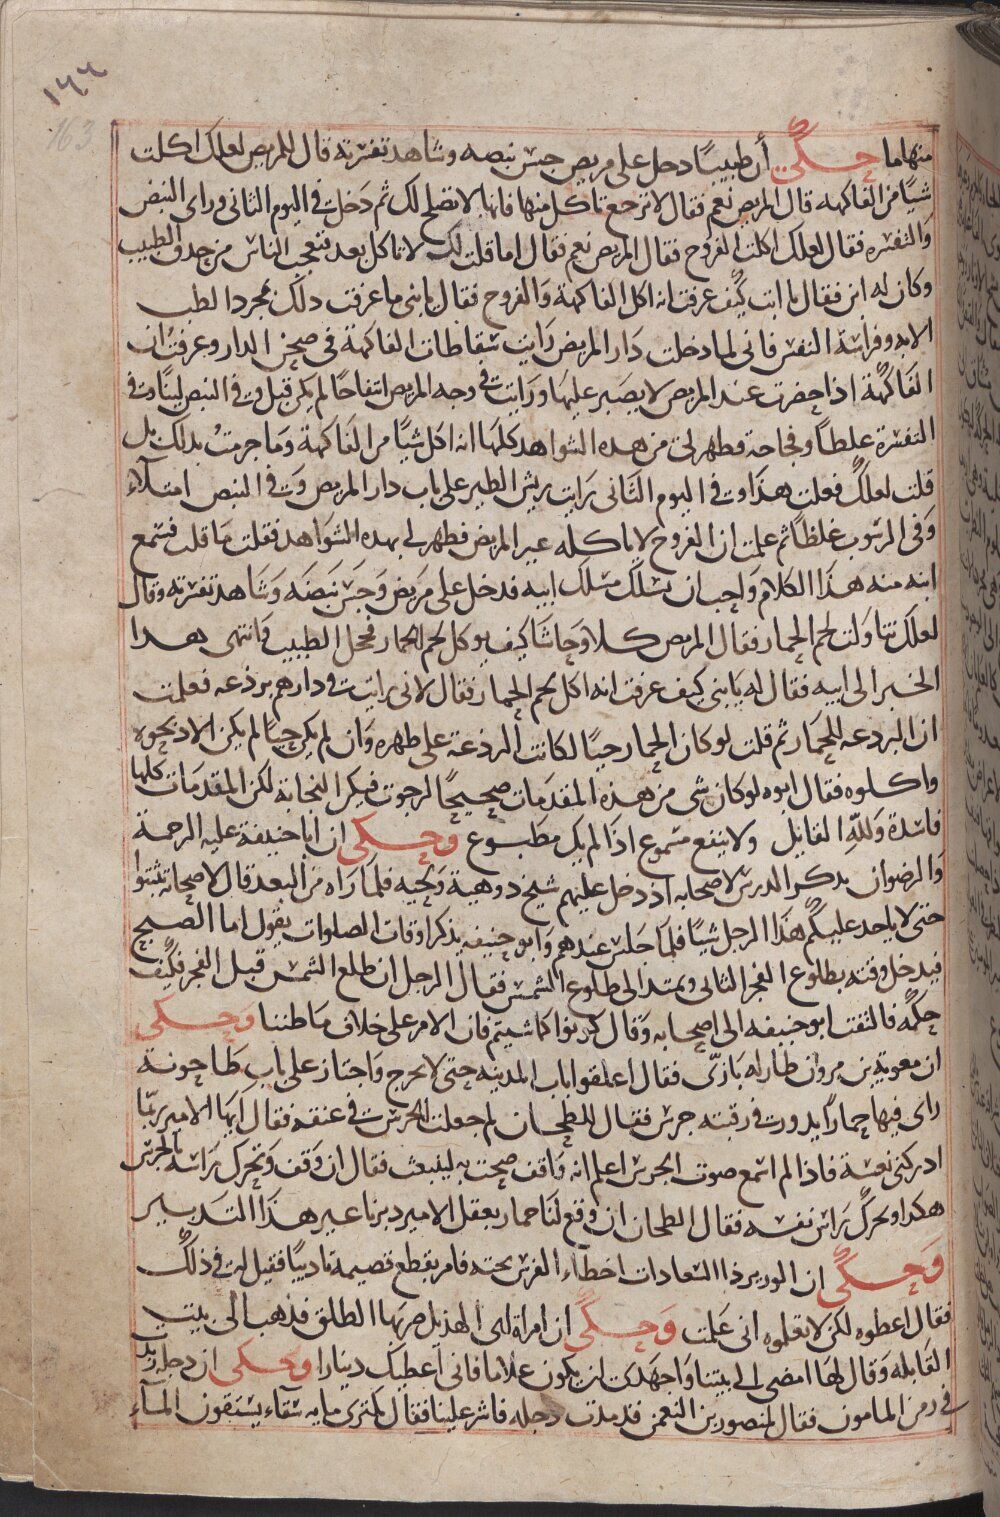 ١٦٦
163
منها ما حكى أن طبيبًا دخل على مريض جس نبضه وشاهد تفسرته قال للمريض لعلك اكلت
شيًا من الفاكهة قال المريض نعم فقال لا ترجع تاكل منها فانها لا تصلح لك ثم دخل في اليوم الثاني وراى النبض
والتفسره فقال لعلك اكلت الفروج فقال المريض نعم فقال اما قلت لك لا تاكل بعد فتعجب الناس من حدق الطبيب
وكان له ابن فقال يا ابت كيف عرفت انه اكل الفاكهة والفروج فقال يا بنى ما عرفت ذلك بمجرد الطب
الا به وفراسة النفس فانى لما دخلت دار المريض رايت سقاطات الفاكهة في صحن الدار وعرفت ان
الفاكهة اذا حضرت عند المريض لا يصبر عليها ورايت في وجه المريض انتفاخًا لم يكن قبل وفي النبض لينًا وفي
التفسرة غلظًا وفجاجة فظهر لى من هذه الشواهد كلها انه اكل شيًا من الفاكهة وما جرمتُ بذلك بل
قلت لعلك فعلت هذا وفي اليوم الثانى رايت ريش الطير على باب دار المريض وفي النبض امتلاء
وفى الرسوب غلظًا ثم علمت ان الفروج لا ياكله غير المريض فظهر لى بهذه الشواهد فقلت ما قلت فسمع
ابنه منه هذا الكلام واحب ان يسلك مسلك ابيه فدخل على مريض وجس نبضه وشاهد تفسرته وقال
لعلك تناولت لحم الحمار فقال المريض كلا وحاشا كيف يوكل لحم الحمار فخجل الطبيب وانتهى هدا
الخبر الى ابيه فقال له يا بنى كيف عرفت انه اكل لحم الحمار فقال لانى رايت في دارهم برذعه فعلمت
ان البردعه للحمار ثم قلت لو كان الحمار حيًا لكانت البرذعة على ظهره وان لم يكن حيًا لم يكن الا ذبحوه
واكلوه فقال ابوه لو كان شى من هذه المقدمات صحيحًا لرجوت فيك النجابة لكن المقدمات كلها
فاسدة ولله القايل ولا ينفع مسموع اذا لم يك مطبوع وحكى ان ابا حنيفة عليه الرحمة
والرضوان يدكر الدرس لاصحابه اذ دخل عليهم شيخ ذو هيبة ولحيه فلما راه من البعد قال لاصحابه تثبتوا
حتى لا ياخد عليكم هذا الرجل شيًا فلما جلس عندهم وابو حنيفه يذكر اوقات الصلوات يقول اما الصبح
فيدخل وقته بطلوع الفجر الثانى ويمتد الى طلوع الشمس فقال الرجل ان طلع الشمس قبل الفجر فكيف
حكمه فالتفت ابو حنيفه الى اصحابه وقال كونوا كما شيتم فان الامر على خلاف ما ظننا وحكى
ان معوية بن مروان طار له بازى فقال اغلقوا باب المدينه حتى لا يخرج واجتاز على باب طاحونة
راى فيها حمارًا يدور في رقبته جرس فقال للطحان لم جعلت الجرس في عنقه فقال ايها الامير ربما
ادركنى نعسة فاذا لم اسمع صوت الجرس اعلم انه واقف صحت به لينبعث فقال ان وقف وتحرك راسه بالجرس
هكدا وحرك راس نفسه فقال الطحان ان وقع لنا حمار بعقل الامير دبرنا غير هذا التدبير
وحكى ان الوزير ذا السعادات اخطاء الفرس تحته فامر بقطع قضيمه تاديبًا فقيل له في ذلك
فقال اعطوه لكن لا تعلموه انى علمت وحكى ان امراة ابى الهذيل ضربها الطلق فذهب الى بيت
القابله وقال لها امضى الى بيتنا واجهدى ان يكون غلاما فانى اعطيك دينارا وحكى ان دجله زاد
في زمن المامون فقال لمنصور بن النعمن قد مدت دجله فاشر علينا فقال تكترى مايه سقاء يستقون الماء